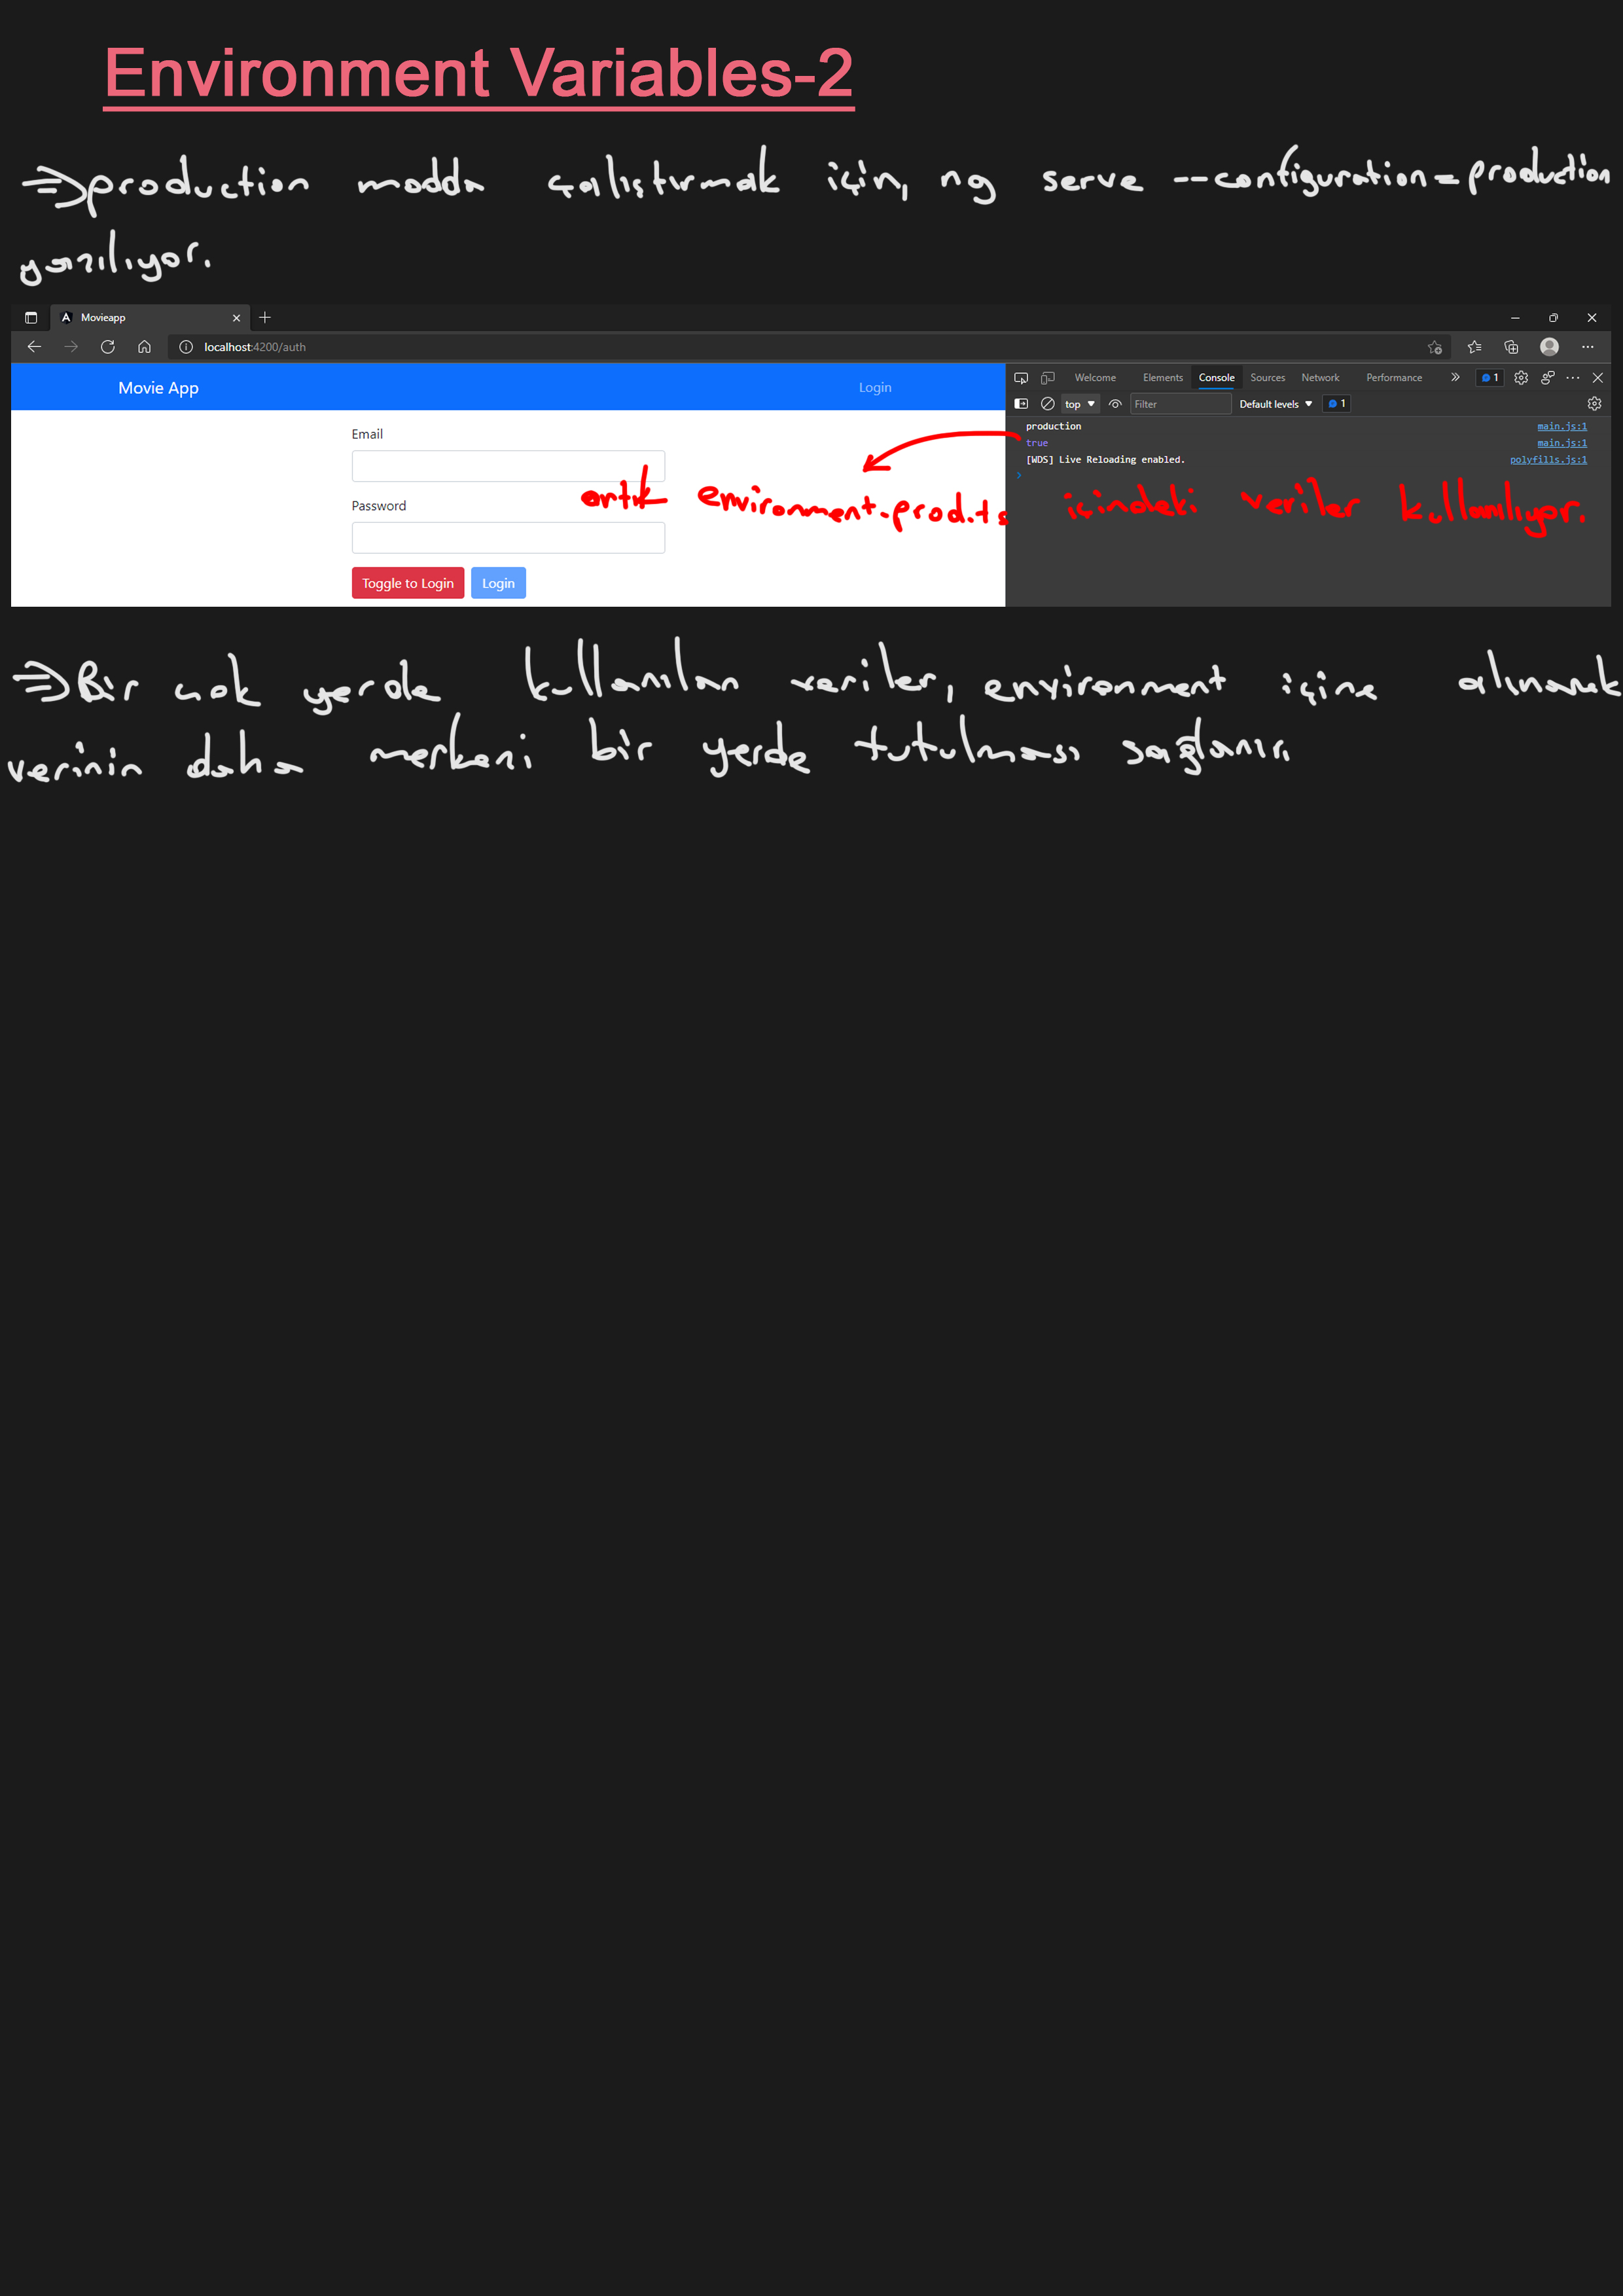 Environment Variables-2
⇒ production modda çalıştırmak için, ng serve --configuration=production
yazılıyor.
Movieapp
localhost:4200/auth
Movie App
Login
Email
Password
Toggle to Login Login
Welcome Elements Console Sources Network Performance 1
top Filter Default levels 1
production main.js:1
true main.js:1
[WDS] Live Reloading enabled. polyfills.js:1
artık environment.prod.ts içindeki veriler kullanılıyor.
⇒ Bir çok yerde kullanılan veriler, environment içine alınarak
verinin daha merkezi bir yerde tutulması sağlanır.